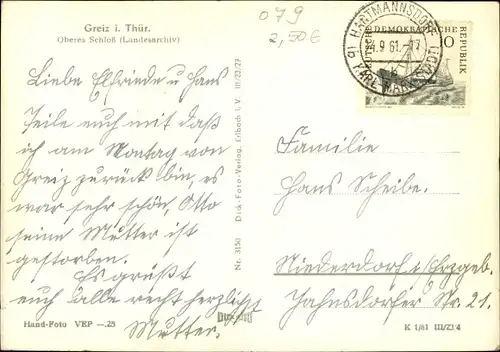 Greiz i. Thür.
Oberes Schloß (Landesarchiv)
079
2,50€
HARTMANNSDORF
9.61.-17
KARL-MARX-STADT
DEUTSCHE DEMOKRATISCHE REPUBLIK
10
Liebe Elfriede u Hans
Teile euch mit daß
ich am Montag von
Greiz zurück bin, es
war sehr schön, Otto
seine Mutter ist
gestorben.
Es grüßt
euch alle recht herzlichst
Mutter.
Hand-Foto VEP —.25
Nr. 3150 Dick-Foto-Verlag, Erlbach i. V. III/23/27
Dick-Foto
Familie
Hans Scheibe.
Niederdorf i/Erzgeb.
Jahnsdorfer Str. 21.
K 1/61 III/23/4